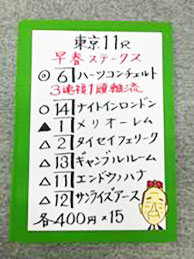 東京11R
早春ステークス
◎6 ハーツコンチェルト
3連複1頭軸流
○14 ナイトインロンドン
▲1 メリオーレム
△2 タイセイフェリーク
△13 ギャンブルルーム
△11 エンドウノハナ
△12 サンライズアース
各400円×15